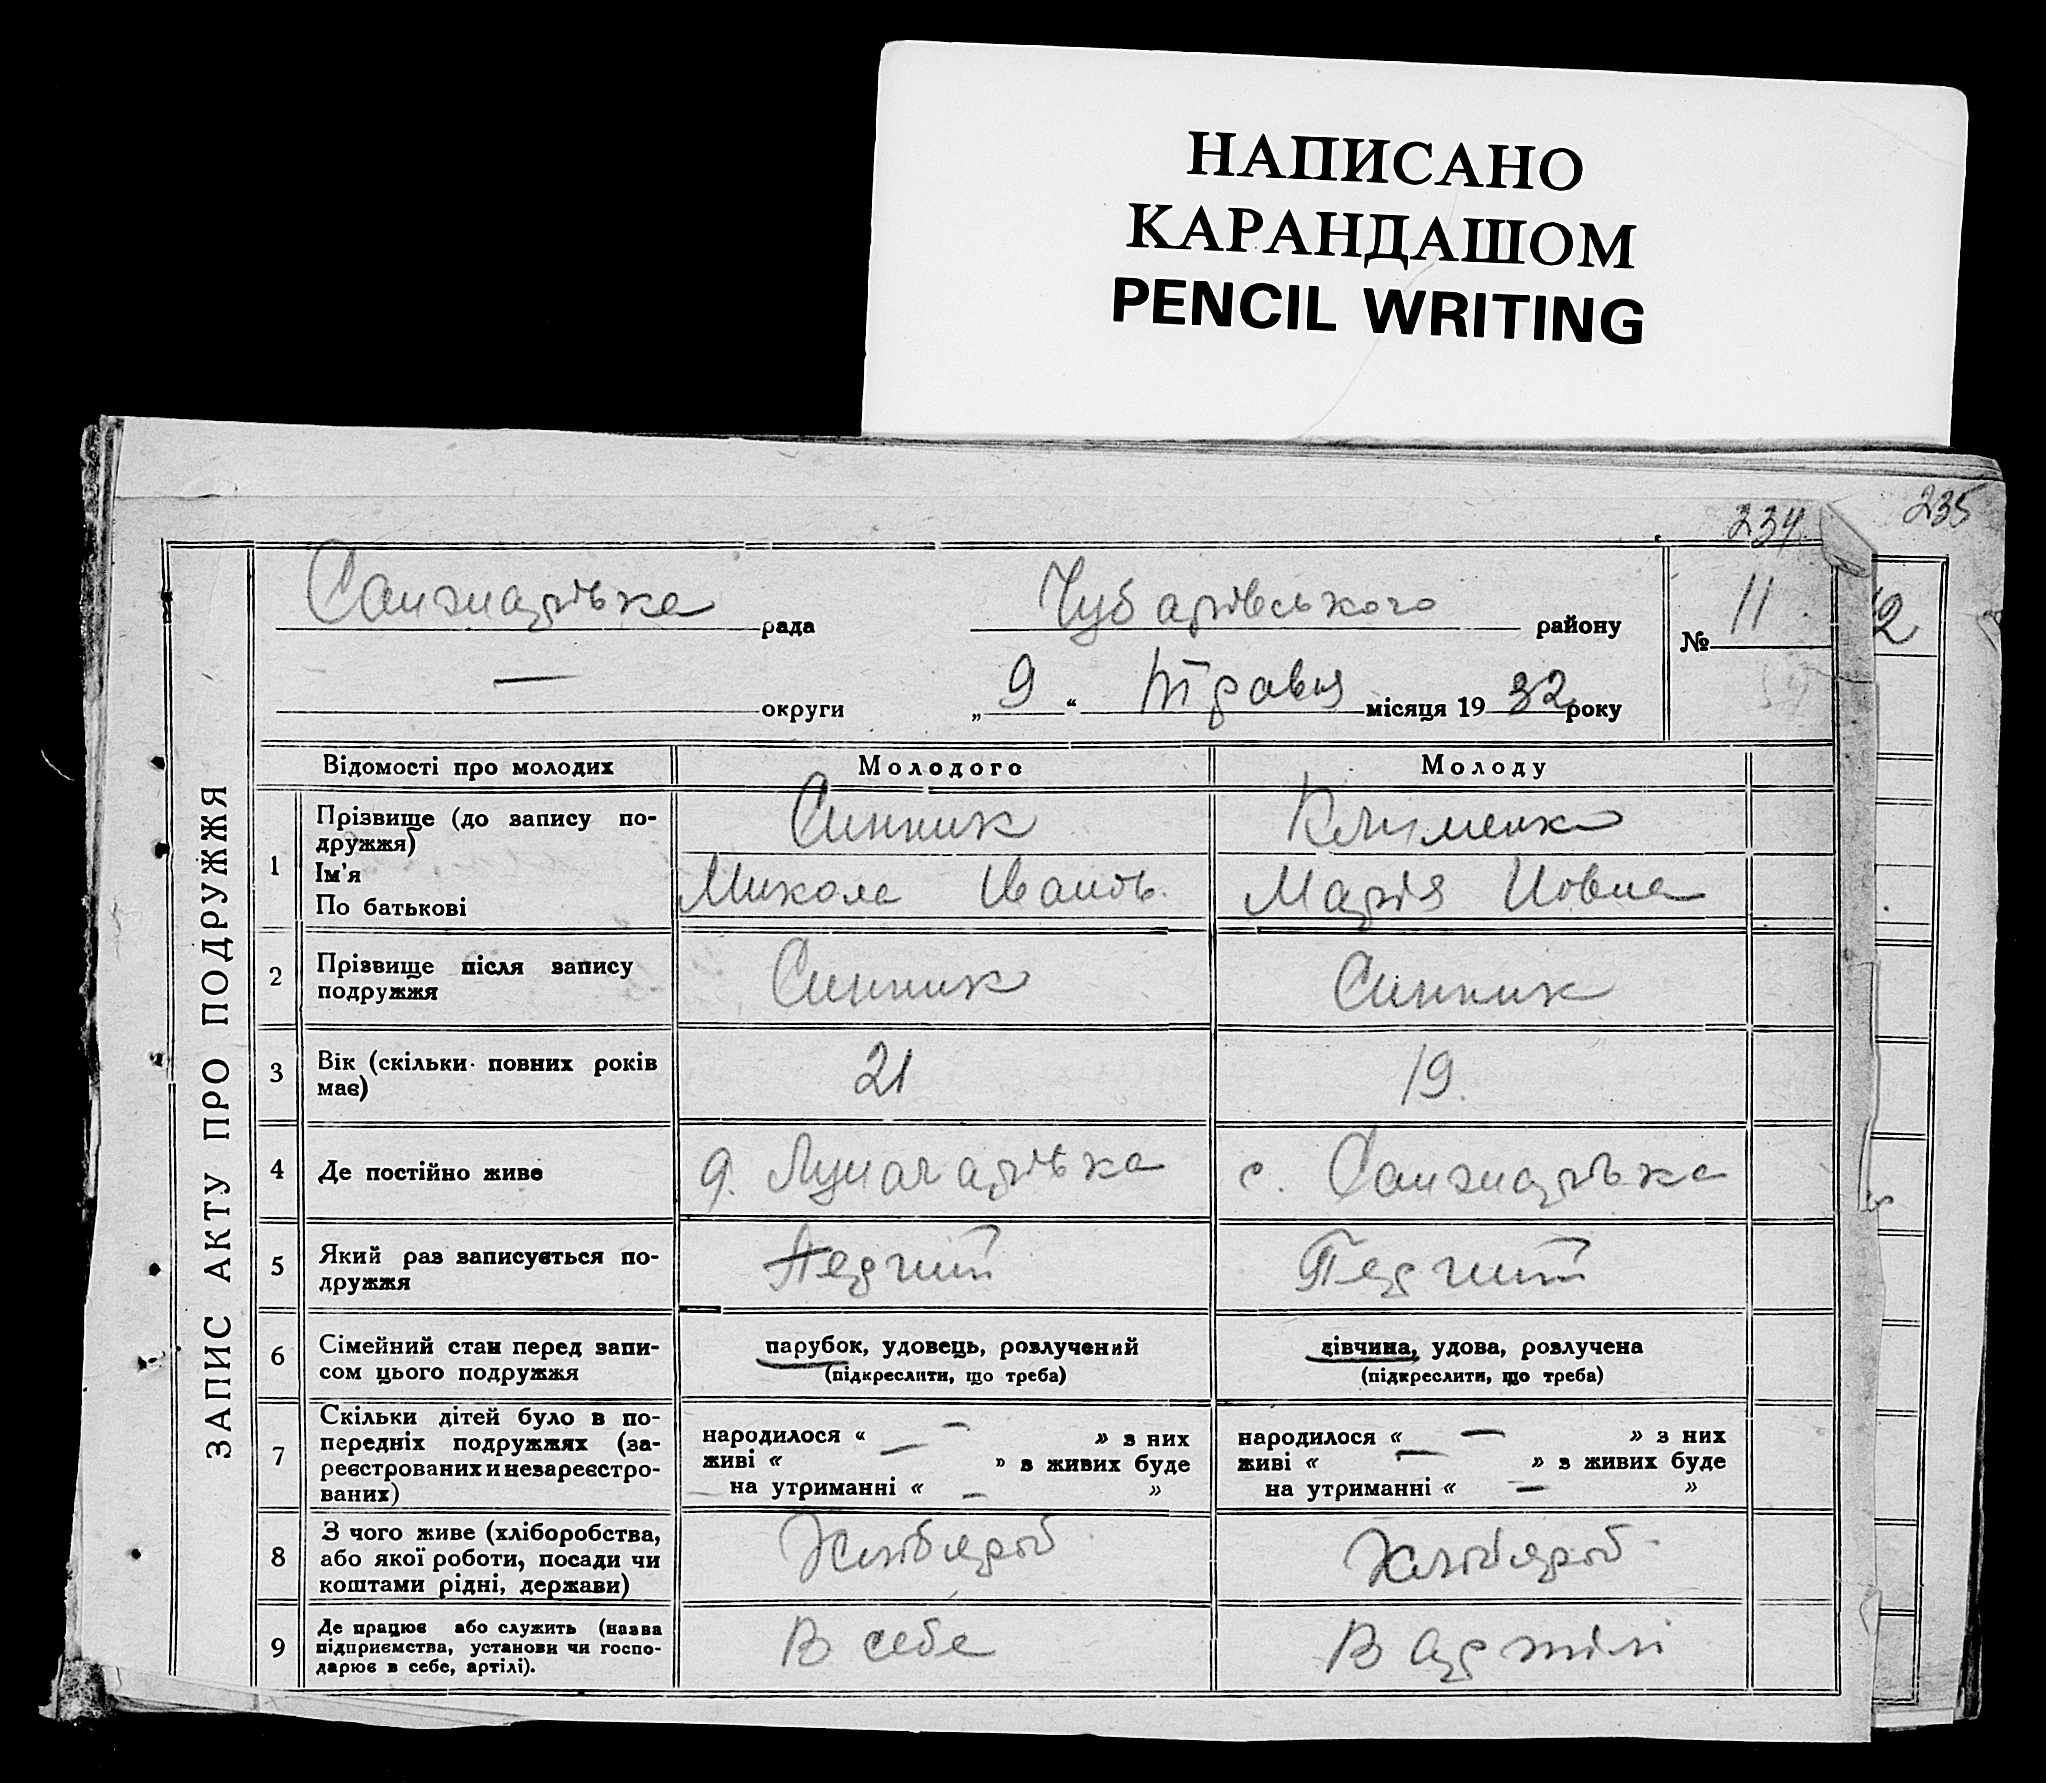 НАПИСАНО
КАРАНДАШОМ
PENCIL WRITING
235
234
Санжарівка рада Чубарівського району № 11
12
— округи „ 9 “ Травня місяця 19 32 року
ЗАПИС АКТУ ПРО ПОДРУЖЖЯ
Відомості про молодих Молодого Молоду
1 Прізвище (до запису по-
дружжя) Синник Клименко
Ім'я
По батькові Микола Іванов. Марія Йовна
2 Прізвище після запису
подружжя Синник Синник
3 Вік (скільки повних років
має) 21 19
4 Де постійно живе д. Луначарівка с. Санжарівка
5 Який раз записується по-
дружжя Перший Перший
6 Сімейний стан перед запи-
сом цього подружжя
парубок, удовець, розлучений дівчина, удова, розлучена
(підкреслити, що треба) (підкреслити, що треба)
7 Скільки дітей було в по-
передніх подружжях (за-
реєстрованих и незареєстро-
ваних)
народилося « — » з них народилося « — » з них
живі « — » з живих буде живі « — » з живих буде
на утриманні « — » на утриманні « — »
8 З чого живе (хліборобства,
або якої роботи, посади чи
коштами рідні, держави) Хлібороб Хлібороб
9 Де працює або служить (назва
підприємства, установи чи госпо-
дарює в себе, артілі). В себе В артілі